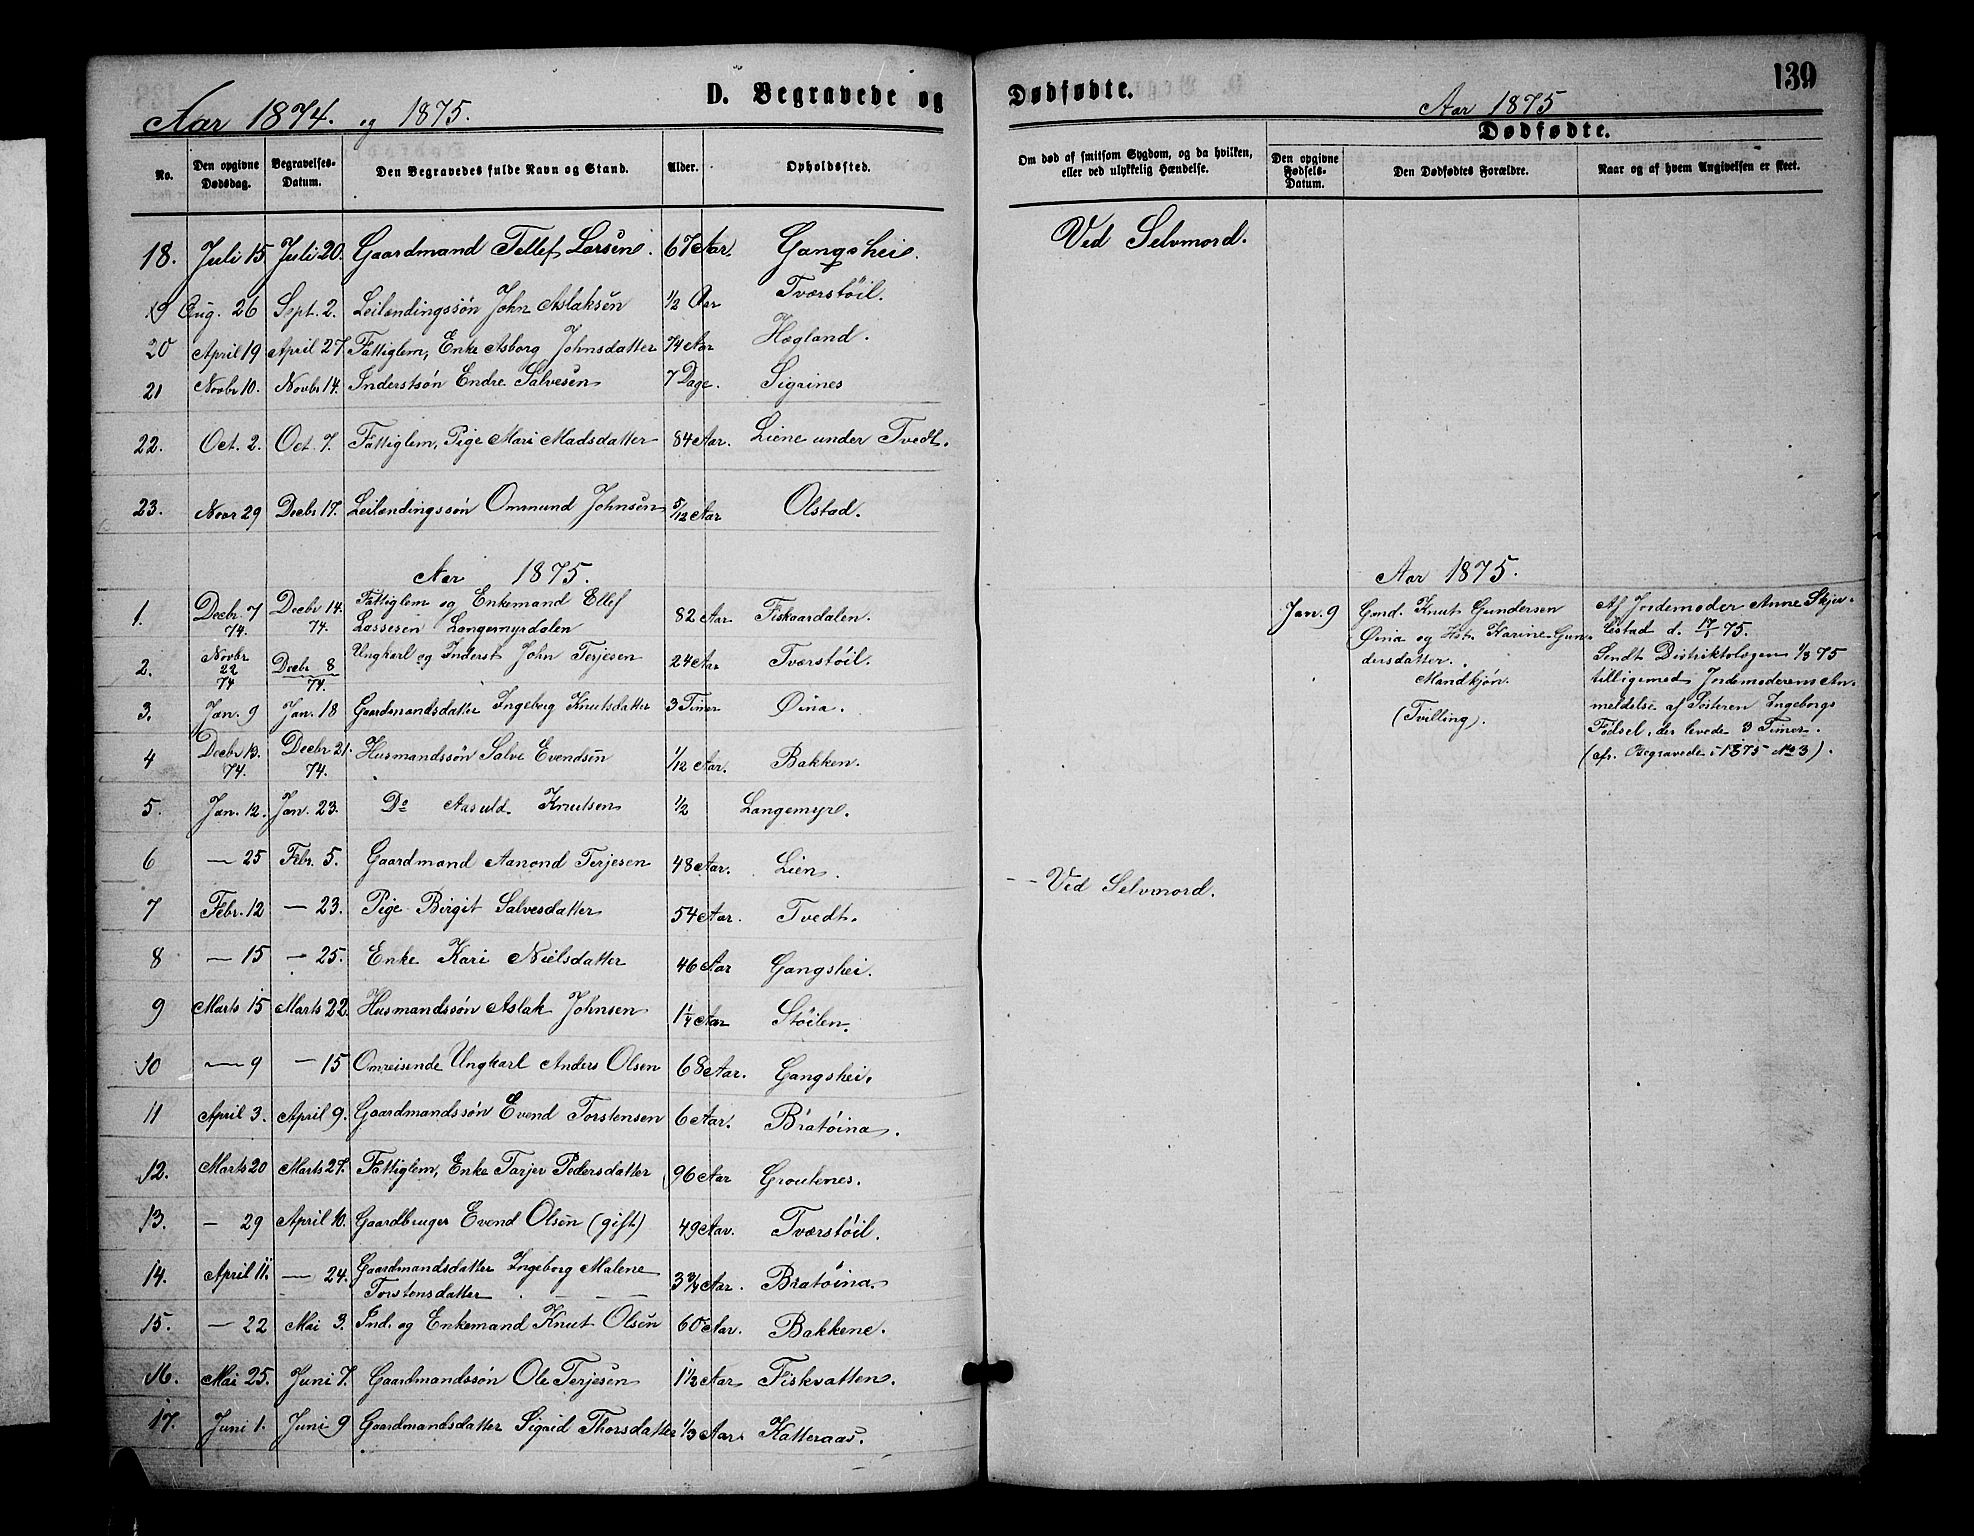 139
Aar 1874. og 1875.
D. Begravede og Dødfødte.
Aar 1875
Dødfødte.
No. | Den opgivne Dødsdag. | Begravelses-Datum. | Den Begravedes fulde Navn og Stand. | Alder. | Opholdssted. | Om død af smitsom Sygdom, og da hvilken, eller ved ulykkelig Hændelse. | Den opgivne Fødsels-Datum. | Den Dødfødtes Forældre. | Naar og af hvem Angivelsen er skeet.
18. Juli 15 Juli 20. Gaardmand Tellef Larsen. 67 Aar. Gangshei. Ved Selvmord.
19 Aug. 26 Sept. 2. Leilendingssøn John Aslaksen 1/2 Aar Tverstöil.
20 April 19 April 27. Fattiglem, Enke Asborg Johnsdatter 74 Aar Hægland.
21 Novbr 10. Novbr 14. Inderstsøn Endre Salvesen 7 Dage. Sigrines
22. Oct. 2. Oct. 7. Fattiglem, Pige Mari Madsdatter 84 Aar. Liene under Tvedt.
23. Novr 29 Decbr 17. Leilendingssøn Ommund Johnsen 5/12 Aar Olstad.
Aar 1875.
1. Decbr 7 74. Decbr 14. 74. Fattiglem og Enkemand Ellef
Lassesen Langemyrdalen 82 Aar Fiskaardalen.
2. Novbr 22 74 Decbr 8 74. Ungkarl og Inderst John Terjesen 24 Aar Tverstöil.
3. Jan. 9 Jan. 18 Gaardmandsdatter Ingeborg Knutsdatter 3 Timer Øina.
4 Decbr 13. 74. Decbr 21. 74. Husmandssøn Salve Evendsen 1/12 Aar. Bakken.
5. Jan. 12. Jan. 23. Do Aasuld Knutsen 1/2 Langemyr.
6 — 25 Febr. 5. Gaardmand Aanond Terjesen 48 Aar. Lien. -- Ved Selvmord.
7 Febr. 12 — 23. Pige Birgit Salvesdatter 54 Aar. Tvedt.
8 — 15 — 25. Enke Kari Nielsdatter 46 Aar Gangshei.
9 Marts 15 Marts 22. Husmandssøn Aslak Johnsen 1 1/4 Aar Støilen.
10 — 9 — 15 Omreisende Ungkarl Anders Olsen 68 Aar. Gangshei.
11 April 3. April 9. Gaardmandssøn Evend Torstensen 6 Aar. Bratøina.
12. Marts 20 Marts 27. Fattiglem, Enke Tarjer Pedersdatter 96 Aar Groutenes.
13. — 29 April 10. Gaardbruger Evend Olsen (gift) 49 Aar. Tverstöil.
14. April 11. — 24. Gaardmandsdatter Ingeborg Malene
Torstensdatter 3 3/4 Aar. Bratøina.
15. — 22 Mai 3. Ind. og Enkemand Knut Olsen 60 Aar. Bakkene.
16. Mai 25. Juni 7. Gaardmandssøn Ole Terjesen 1 1/2 Aar Fiskvatten.
17. Juni 1. Juni 9 Gaardmandsdatter Sigrid Thorsdatter 1/3 Aar Katteraas.
Aar 1875.
Jan. 9 Gmd. Knut Gundersen
Øina og Hst. Karine Gun-
dersdatter.
Mandkjøn.
(Tvilling).
Af Jordemoder Anne Skje-
lestad d. 17/1 75.
Sendt Distriktslægen 1/3 75
tilligemed Jordemoderens An-
meldelse af Søsteren Ingeborgs
Fødsel, der levede 3 Timer.
(cfr. Begravede i 1875 No 3).